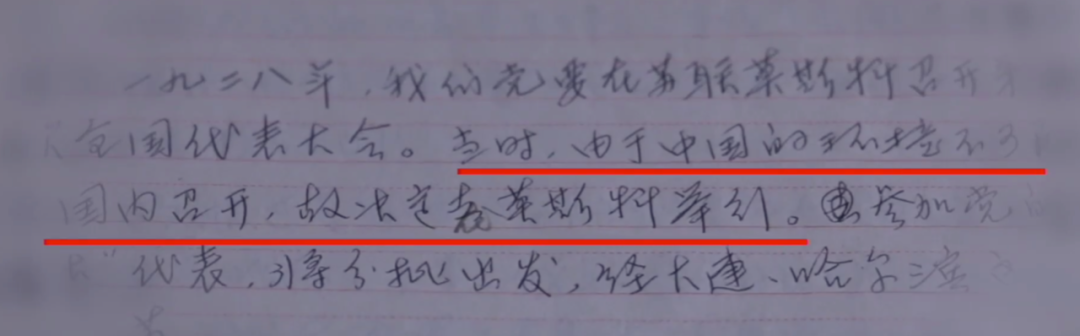 一九二八年，我们党要在苏联莫斯科召开
全国代表大会。当时，由于中国的环境不
国内召开，故决定在莫斯科举行。参加党
代表，分批出发，经大连、哈尔滨